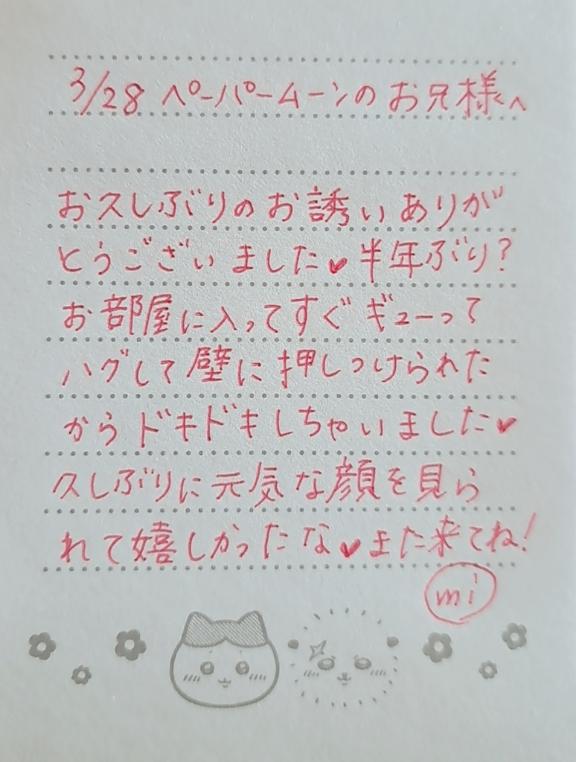 3/28 ペーパームーンのお兄様へ
お久しぶりのお誘いありが
とうございました♥半年ぶり?
お部屋に入ってすぐギューって
ハグして壁に押しつけられた
からドキドキしちゃいました♥
久しぶりに元気な顔を見ら
れて嬉しかったな♥また来てね!
mi